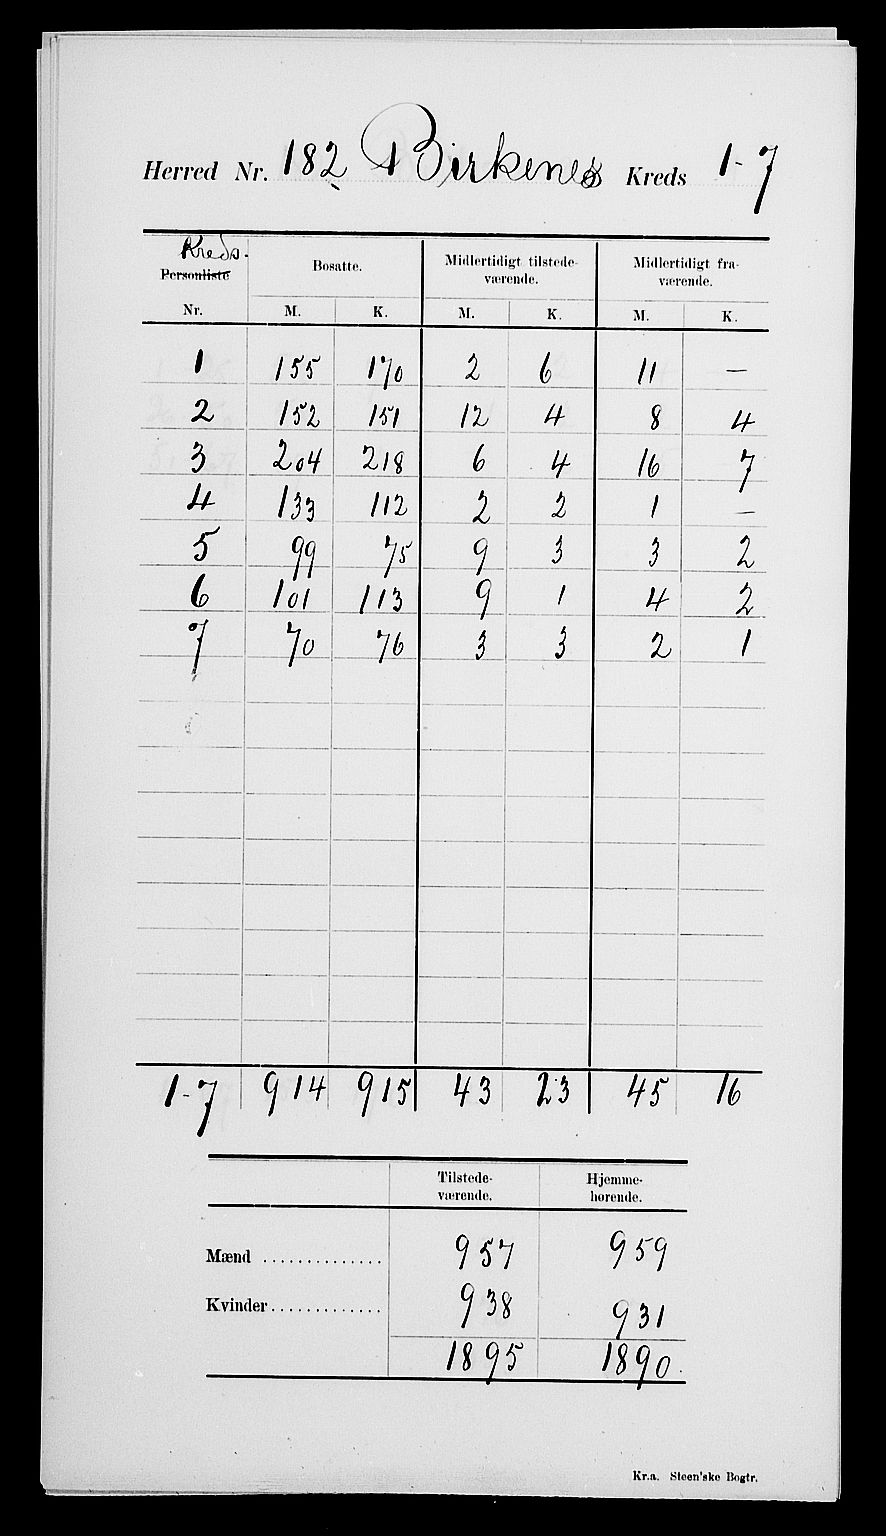 Herred Nr. 182 Birkenes Kreds 1-7
Kreds.
Personliste Bosatte. Midlertidigt tilstede- Midlertidigt fra-
værende. værende.
Nr. M. K. M. K. M. K.
1 155 170 2 6 11 —
2 152 151 12 4 8 4
3 204 218 6 4 16 7
4 133 112 2 2 1 —
5 99 75 9 3 3 2
6 101 113 9 1 4 2
7 70 76 3 3 2 1
1-7 914 915 43 23 45 16
Tilstede- Hjemme-
værende. hørende.
Mænd .............. 957 959
Kvinder............. 938 931
1895 1890.
Kr.a. Steen'ske Bogtr.